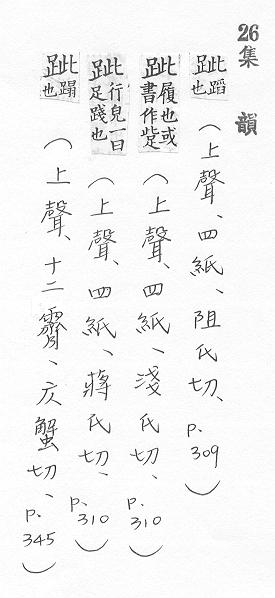 26集 韻
跐蹈也(上聲、四紙、阻氏切、p.309)
跐履也或書作(上聲、四紙、淺氏切、p.310)
跐行皃一曰足踐也(上聲、四紙、蔣氏切、p.310)
跐蹋也(上聲、十二霽、仄蟹切、p.345)